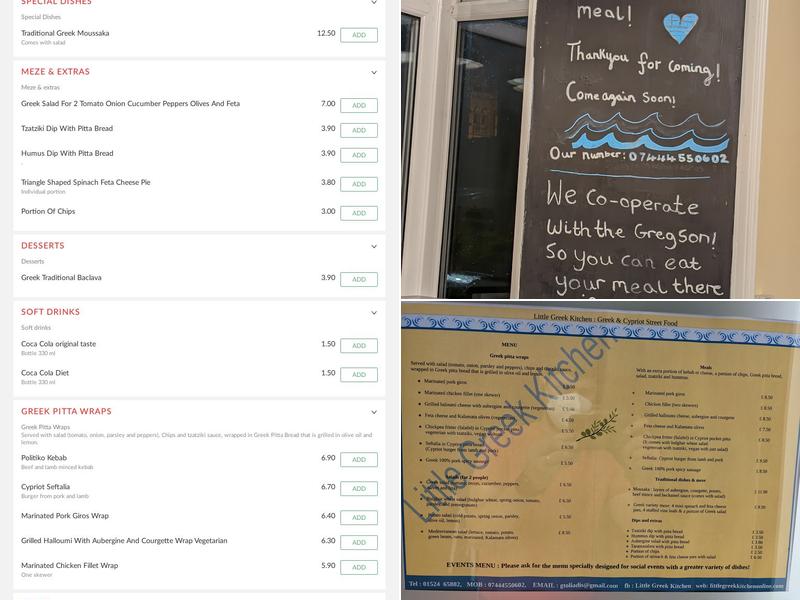 SPECIAL DISHES
Special Dishes
Traditional Greek Moussaka 12.50 ADD
Comes with salad
MEZE & EXTRAS
Meze & extras
Greek Salad For 2 Tomato Onion Cucumber Peppers Olives And Feta 7.00 ADD
Tzatziki Dip With Pitta Bread 3.90 ADD
Humus Dip With Pitta Bread 3.90 ADD
.
Triangle Shaped Spinach Feta Cheese Pie 3.80 ADD
Individual portion
Portion Of Chips 3.00 ADD
DESSERTS
Desserts
Greek Traditional Baclava 3.90 ADD
SOFT DRINKS
Soft drinks
Coca Cola original taste 1.50 ADD
Bottle 330 ml
Coca Cola Diet 1.50 ADD
Bottle 330 ml
GREEK PITTA WRAPS
Greek Pitta Wraps
Served with salad (tomato, onion, parsley and peppers), Chips and tzatziki sauce, wrapped in Greek Pitta Bread that is grilled in olive oil and
lemon.
Politiko Kebab 6.90 ADD
Beef and lamb minced kebab
Cypriot Seftalia 6.70 ADD
Burger from pork and lamb
Marinated Pork Giros Wrap 6.40 ADD
Grilled Halloumi With Aubergine And Courgette Wrap Vegetarian 6.30 ADD
Marinated Chicken Fillet Wrap 5.90 ADD
One skewer
meal!
Thankyou for coming!
Come again Soon!
Our number: 07444550602
We Co-operate
With the Gregson!
So you can eat
your meal there
Little Greek Kitchen : Greek & Cypriot Street Food
MENU
Greek pitta wraps
Served with salad (tomato, onion, parsley and peppers), chips and tzatziki sauce,
wrapped in Greek pitta bread that is grilled in olive oil and lemon.
Marinated pork giros
Marinated chicken fillet (one skewer)
Grilled halloumi cheese with aubergine and courgette (vegetarian)
Feta cheese and Kalamata olives (vegetarian)
Chickpea fritter (falafel) in Cypriot pocket pitta
Seftalia in Cypriot
(Cypriot burger from lamb and pork)
Greek 100% pork spicy sausage £ 5.50
Salads (for 2 people)
salad (bulghur wheat, spring onion, tomato,
salad (cold potato, spring onion, parsley,
olive oil, lemon)
Mediterranean salad (lettuce, tomato, potato
green beans, tuna, marinated, Kalamata olives) £ 8.50
Meals
With an extra portion of kebab or cheese, a portion of chips, Greek pitta bread,
salad, tzatziki and hummus.
Marinated pork giros £ 8.50
Chicken fillet (two skewers) £ 8.50
Grilled halloumi cheese, aubergine and courgette £ 8.50
Feta cheese and Kalamata olives £ 7.50
Chickpea fritter (falafel) in Cypriot pocket pitta £ 8.50
Seftalia: Cypriot burger from lamb and pork £ 9.50
Greek 100% pork spicy sausage £ 8.50
Traditional dishes & meze
Moussaka : layers of aubergine, courgette, potato,
beef mince and bechamel sauce (comes with salad)
Dips and extras
Tzatziki dip with pitta bread
Hummus dip with pitta bread
Aubergine salad with pitta bread
Taramosalata with pitta bread
Portion of chips
EVENTS MENU : Please ask for the menu specially designed for social events with a greater variety of dishes!
Tel : 01524 65802, MOB : 07444550602, EMAIL : gtoliadis@gmail.com fb : Little Greek Kitchen web: littlegreekkitchenonline.com
Little Greek Kitchen